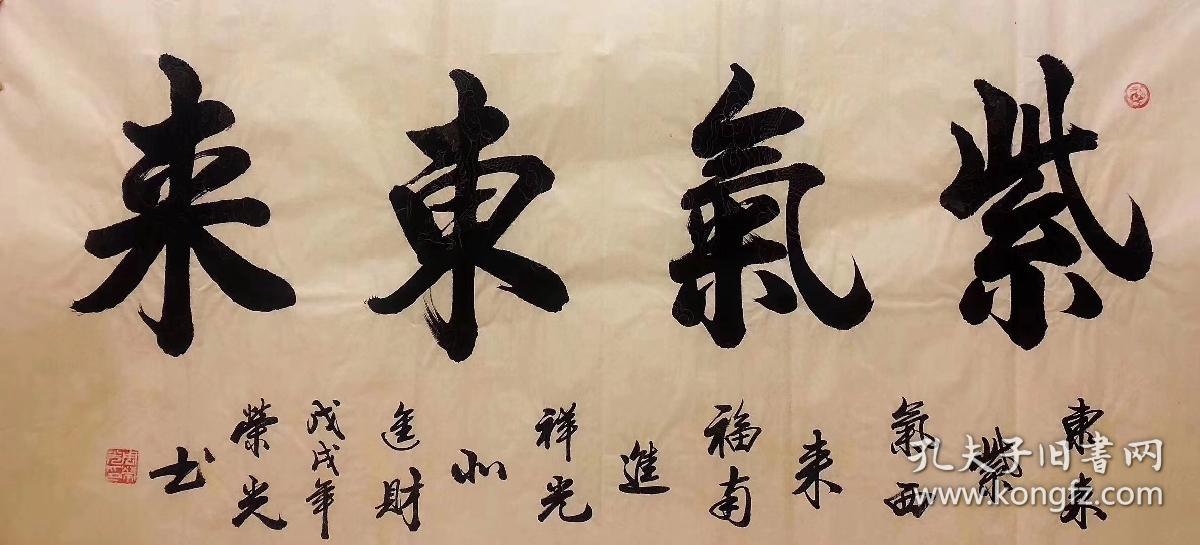 紫氣東来
東来
紫
氣西
来
福南
進
祥光
北
進財
戊戌年
榮光
书
孔夫子旧书网
www.kongfz.com